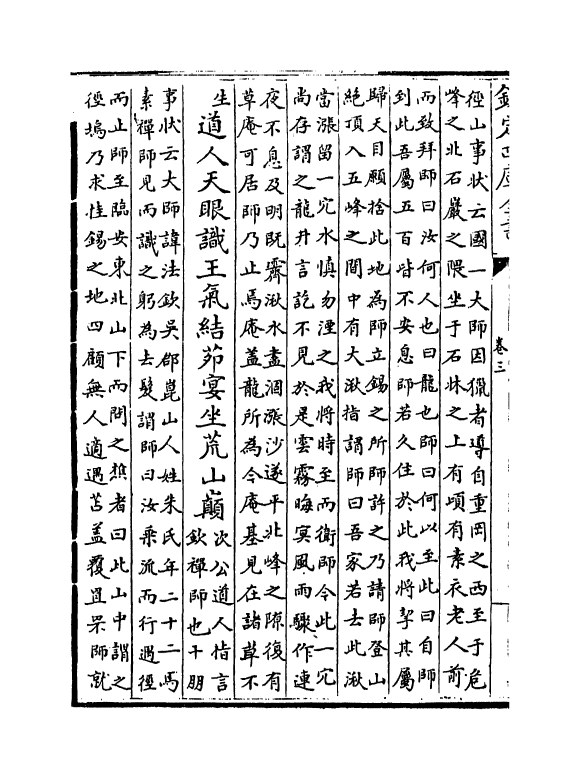 欽定四庫全書
卷三
徑山事狀云國一大師因獵者導自重岡之西至于危
峰之北石巖之隈坐于石牀之上有頃有素衣老人前
而致拜師曰汝何人也曰龍也師曰何以至此曰自師
到此吾屬五百皆不安息師若久住於此我將挈其屬
歸天目願捨此地為師立錫之所師許之乃請師登山
絶頂入五峰之間中有大湫指謂師曰吾家若去此湫
當漲留一穴水慎勿湮之我將時至而衛師今此一穴
尚存謂之龍井言訖不見於是雲霧晦冥風雨驟作連
夜不息及明既霽湫水盡涸漲沙遂平北峰之隙復有
草庵可居師乃止焉庵蓋龍所為今庵基見在諸草不
生
道人天眼識王氣結茆宴坐荒山巔
次公道人指言
欽禪師也十朋
事狀云大師諱法欽吳郡崑山人姓朱氏年二十二馬
素禪師見而識之躬為去髮謂師曰汝乘流而行遇徑
而止師至臨安東北山下而問之樵者曰此山中謂之
徑塢乃求住錫之地四顧無人適遇苫蓋覆罝罘師就